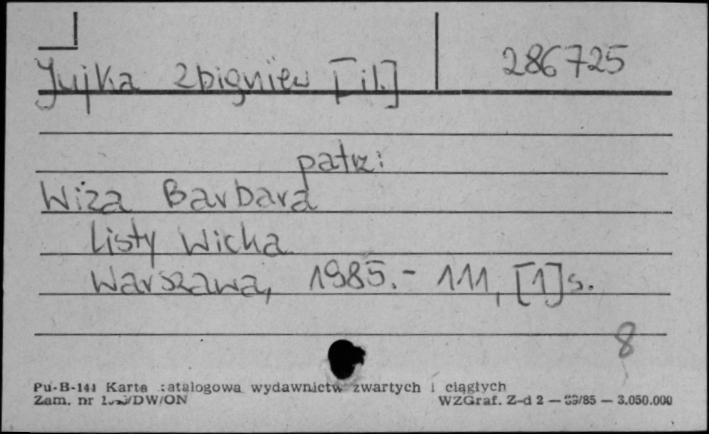 Jujka Zbigniew [il.] 286725
patrz:
Wiza Barbara
Listy Wicka
Warszawa, 1985.- 111, [1]s.
8
Pu-B-141 Karta katalogowa wydawnictw zwartych i ciągłych
Zam. nr /DW/ON WZGraf. Z-d 2 — /85 — 3.050.000